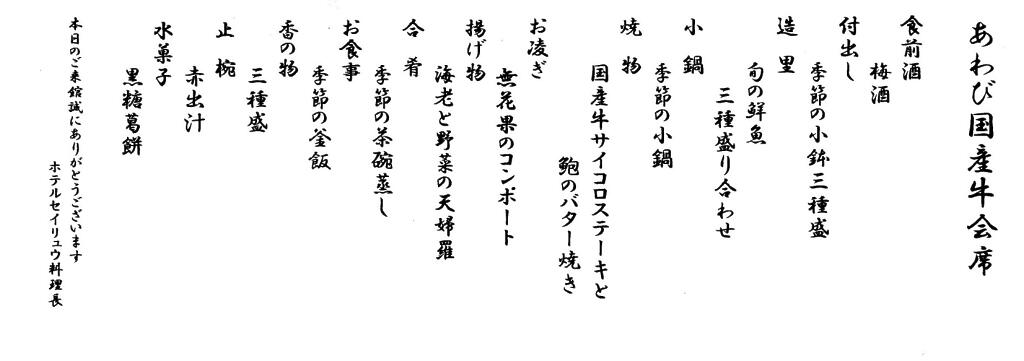 あわび国産牛会席
食前酒
梅酒
付出し
季節の小鉢三種盛
造里
旬の鮮魚
三種盛り合わせ
小鍋
季節の小鍋
焼物
国産牛サイコロステーキと
鮑のバター焼き
お凌ぎ
無花果のコンポート
揚げ物
海老と野菜の天婦羅
合肴
季節の茶碗蒸し
お食事
季節の釜飯
香の物
三種盛
止椀
赤出汁
水菓子
黒糖葛餅
本日のご来館誠にありがとうございます
ホテルセイリュウ料理長